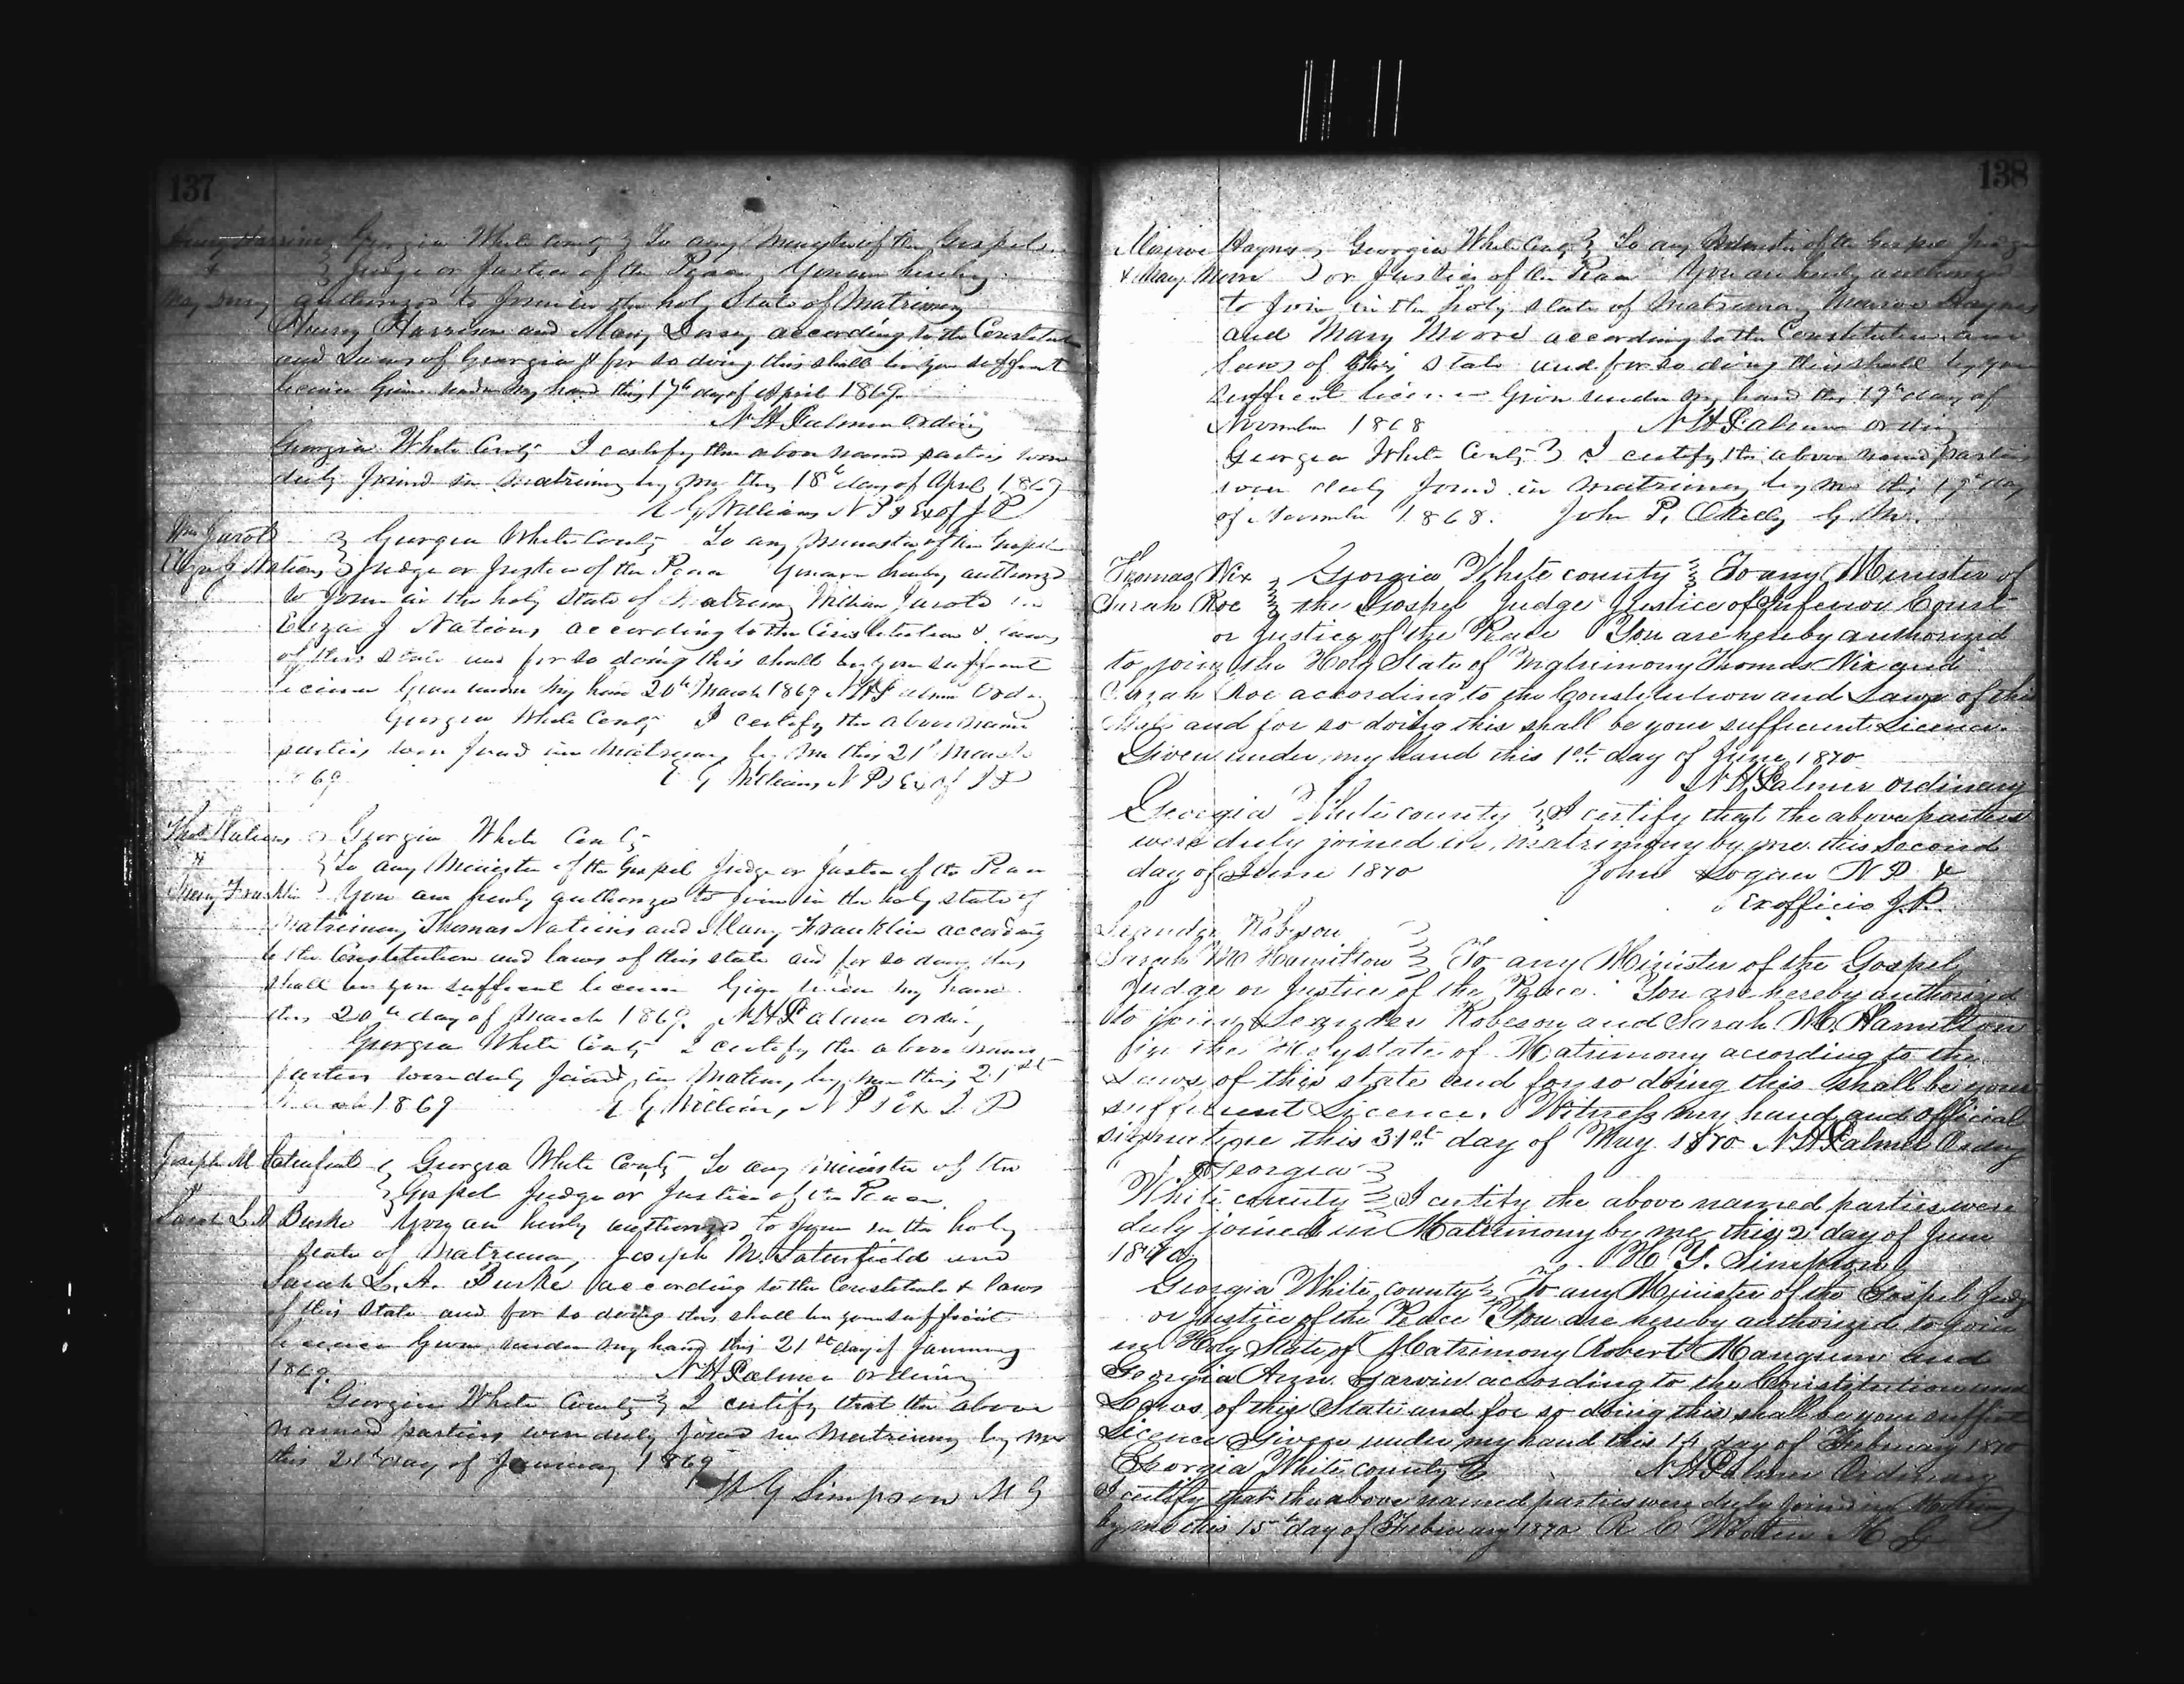 137
Henry Harrison Georgia White County } To any Minister of the Gospel
& } Judge or Justice of the Peace You are hereby
Mary Dorsey authorized to Join in the holy State of Matrimony
Henry Harrison and Mary Dorsey according to the Constitution
and Laws of Georgia & for so doing this shall be your sufficient
license Given under my hand this 17th day of April 1869
N H Palmer Ordinary
Georgia White County I certify the above named parties were
duly Joined in Matrimony by me this 18th day of April 1869
E G Williams N P & Ex of J P
Wm Jarott } Georgia White County To any Minister of the Gospel
Eliza J Nations } Judge or Justice of the Peace You are hereby authorized
to Join in the holy State of Matrimony William Jarott
Eliza J Nations according to the Constitution & Laws
of this state and for so doing this shall be your sufficient
License Given under my hand 20th March 1869 N H Palmer Ord
Georgia White County I certify the above name
parties were Joined in Matrimony by me this 21st March
1869 E G Williams N P & Ex of J P
Thos Nations } Georgia White County
& } To any Minister of the Gospel Judge or Justice of the Peace
Mary Franklin } You are hereby authorized to Join in the holy state of
Matrimony Thomas Nations and Mary Franklin according
to the Constitution and laws of this state and for so doing this
shall be your sufficient license Given under my hand
this 20th day of March 1869 N H Palmer Ordi
Georgia White County I certify the above named
parties were duly Joined in Matrimony by me this 21st
March 1869 E G Williams N P & Ex J P
Joseph M Satterfield } Georgia White County To any Minister of the
& } Gospel Judge or Justice of the Peace
Sarah L A Burke You are hereby authorized to Join in the holy
state of Matrimony Joseph M. Satterfield and
Sarah L. A. Burke according to the Constitution & laws
of this State and for so doing this shall be your sufficient
license Given under my hand this 21st day of January
1869 N H Palmer Ordinary
Georgia White County } I certify that the above
named parties were duly joined in Matrimony by me
this 21st day of January 1869
W G Simpson M G
138
Haynes } Georgia White County } To any Minister of the Gospel Judge
& Mary Moore } or Justice of the Peace You are hereby authorized
to Join in the holy state of Matrimony Haynes
and Mary Moore according to the Constitution and
Laws of this state and for so doing this shall be your
sufficient license Given under my hand this 19th day of
November 1868 N H Palmer Ordin
Georgia White County } I certify the above named parties
were duly Joined in Matrimony by me this 19th day
of November 1868. John P. OKelly G. M.
Thomas Nix } Georgia White county } To any Minister of
Sarah Roe } the Gospel Judge Justice of Inferior Court
or Justice of the Peace You are hereby authorized
to join the Holy State of Matrimony Thomas Nix and
Sarah Roe according to the Constitution and Laws of this
State and for so doing this shall be your sufficient Licence.
Given under my hand this 1st day of June 1870
N H Palmer ordinary
Georgia White county } I certify that the above parties
were duly joined in matrimony by me this second
day of June 1870 John Logan N P &
Exofficio J. P.
Leander Robeson }
Sarah M Hamilton } To any Minister of the Gospel
Judge or Justice of the Peace. You are hereby authorized
to join Leander Robeson and Sarah M Hamilton
in the Holy state of Matrimony according to the
Laws of this state and for so doing this shall be your
sufficient Licence. Witness my hand and official
signature this 31st day of May 1870 N H Palmer Ordny
Georgia }
White county } I certify the above named parties were
duly joined in Matrimony by me this 2 day of June
1870 H. Y. Simpson
Georgia White county } To any Minister of the Gospel Judge
or Justice of the Peace You are hereby authorized to join
in Holy State of Matrimony Robert Mangum and
Georgia Ann Garvin according to the Constitution and
Laws of this State and for so doing this shall be your suffint
Licence Given under my hand this 14 day of February 1870
Georgia White county } N H Palmer Ordinary
I certify that the above named parties were duly joined in
by me this 15th day of February 1870 R C M G